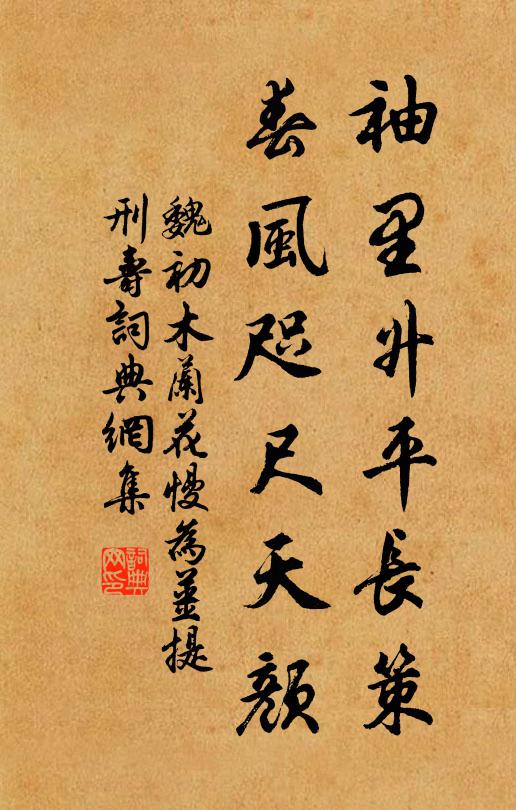 袖里升平長策
春風咫尺天顏
魏初木蘭花慢為姜提
刑壽詞典網集
詞典網印